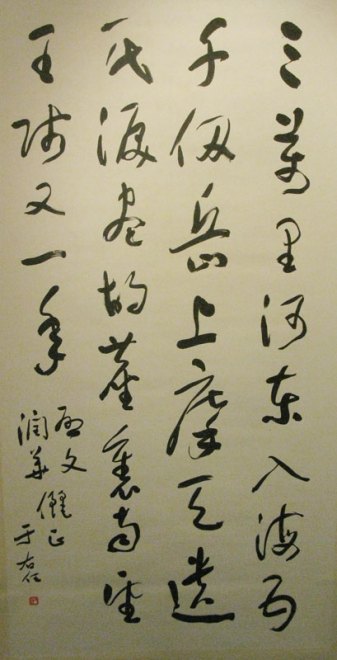 三萬里河東入海五
千仞岳上摩天遺
民淚盡胡塵裏南望
王師又一年
文
潤華
儷正
于右任